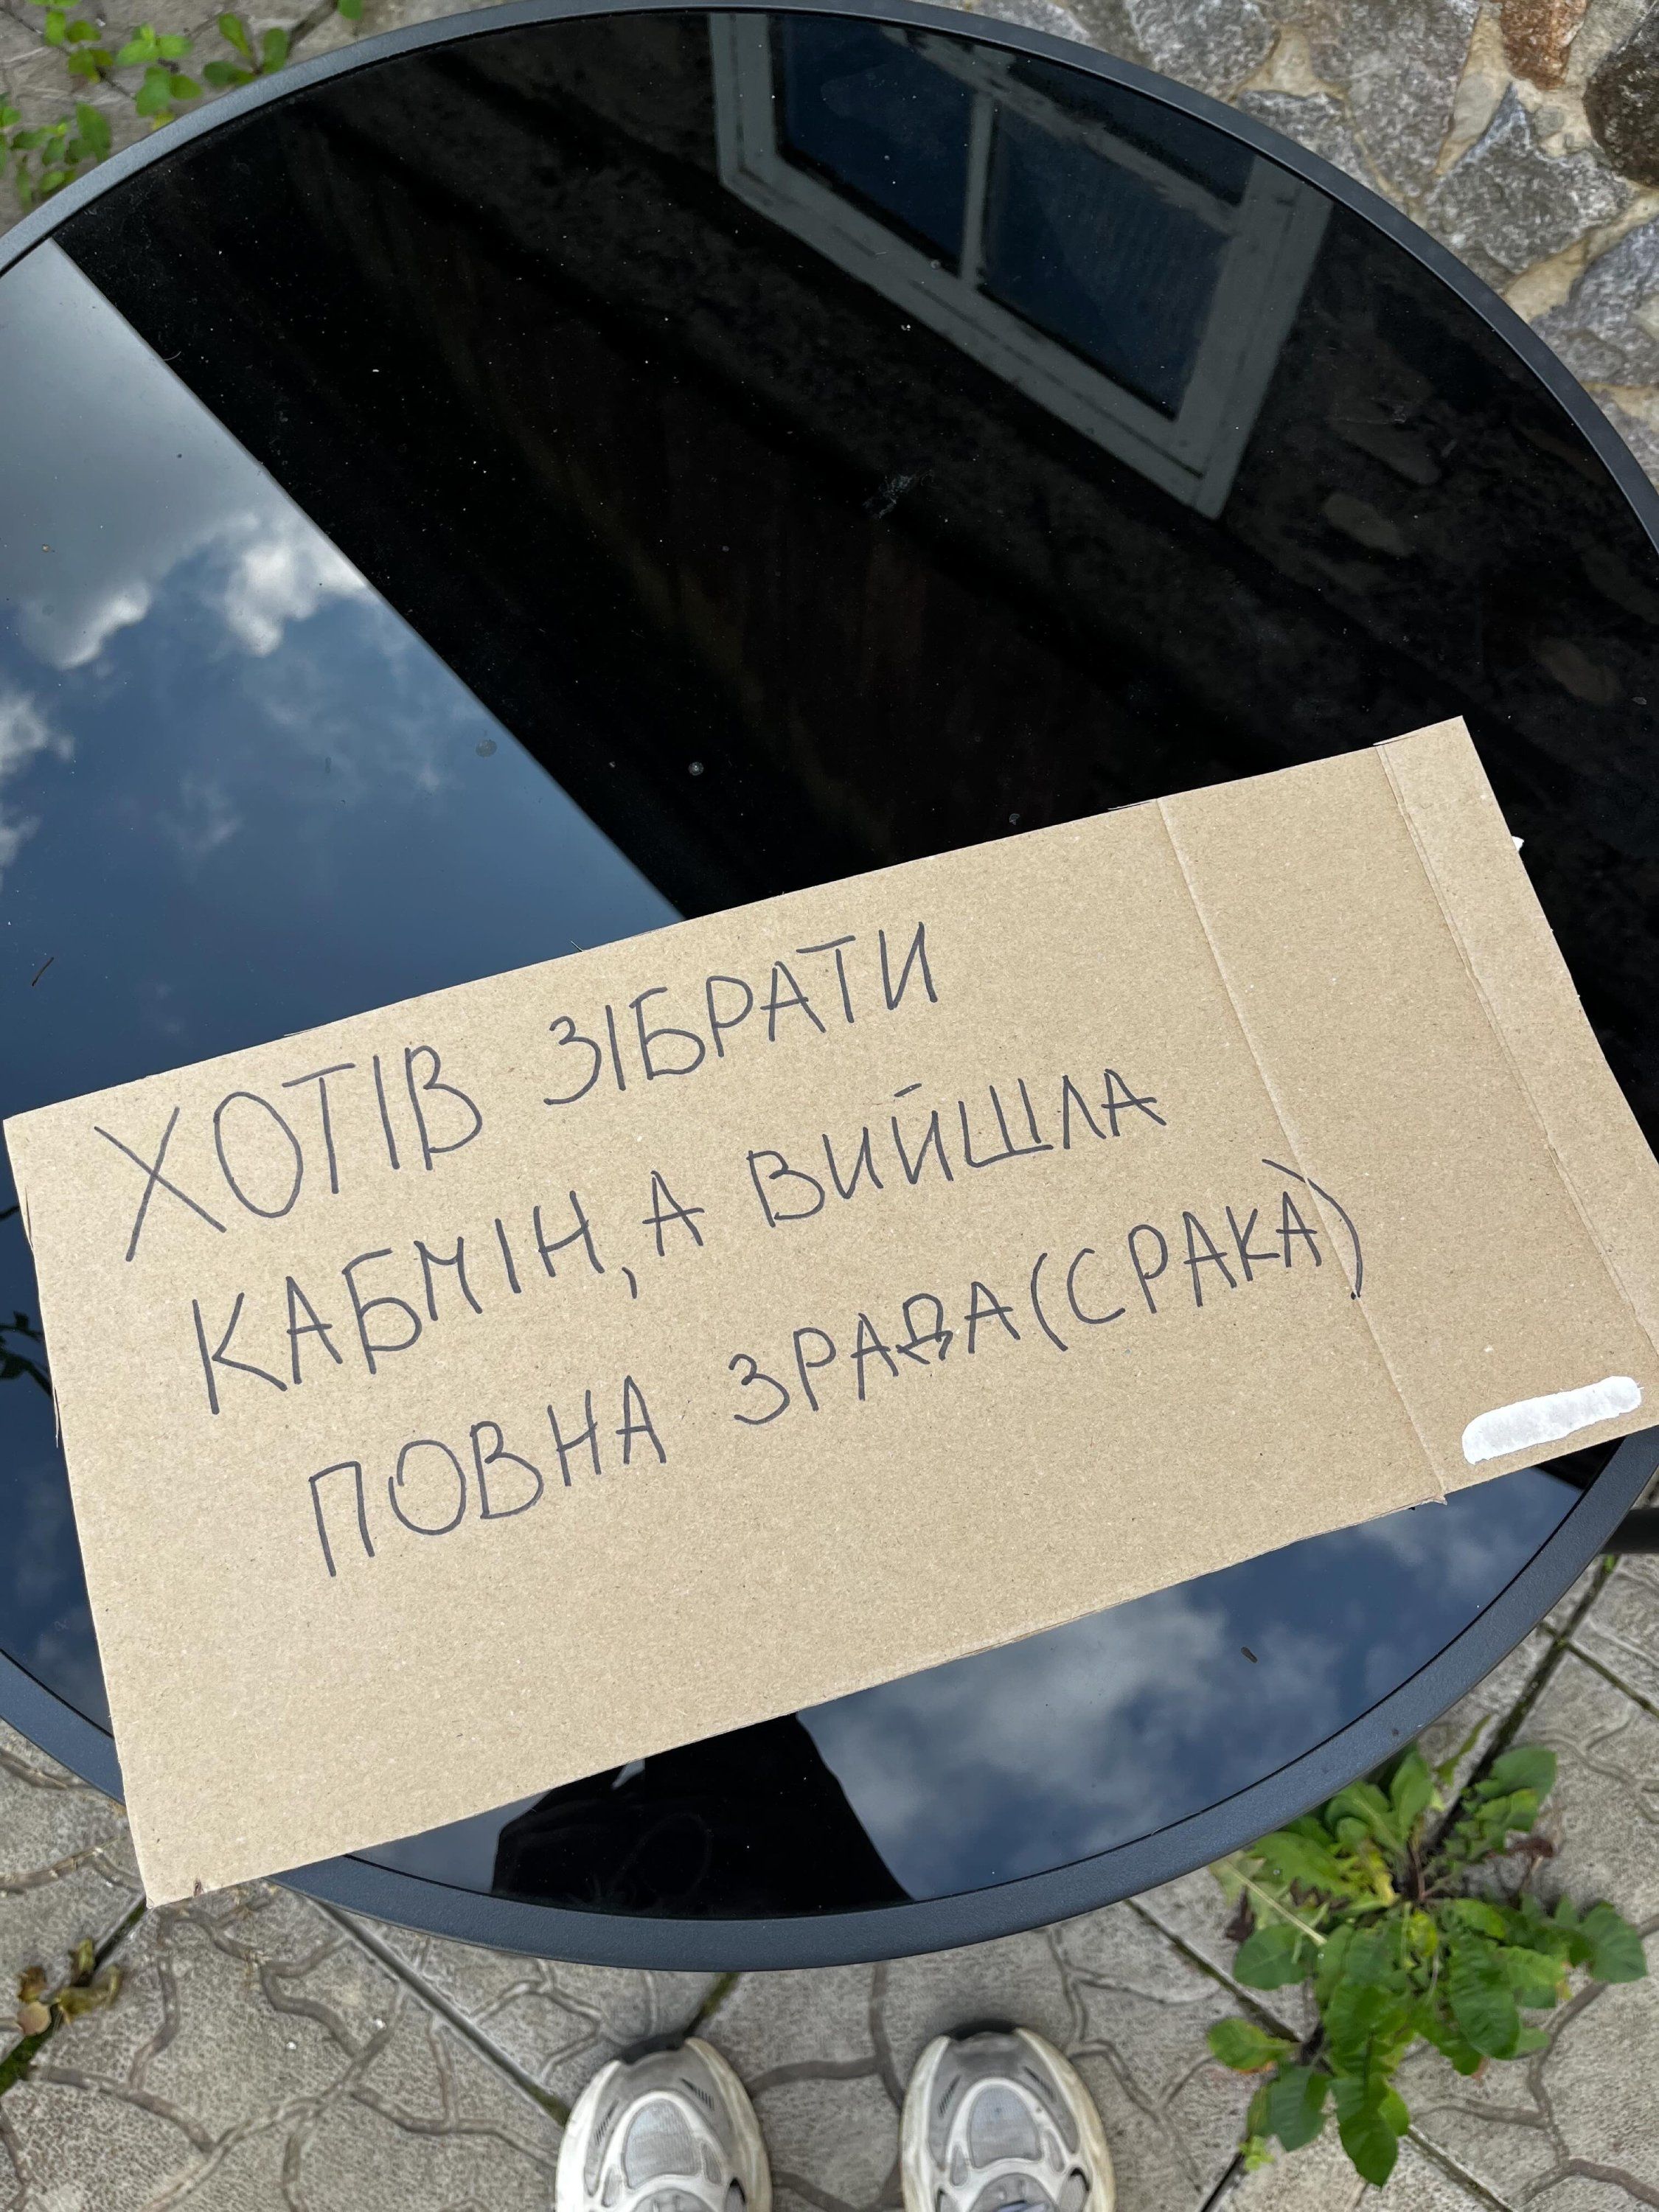 ХОТІВ ЗІБРАТИ
КАБМІН, А ВИЙШЛА
ПОВНА ЗРАДА (СРАКА)